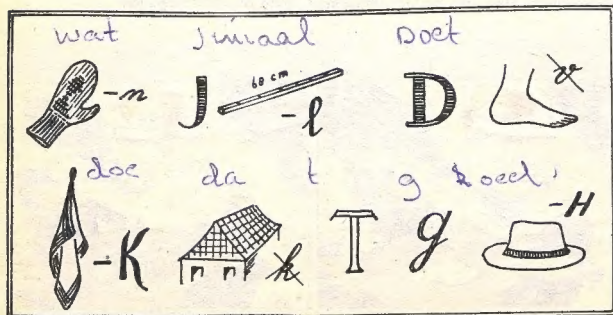 wat Jiniaal Doet
-n J 60 cm -l D v
doe da t g hoed
-K h T g -H